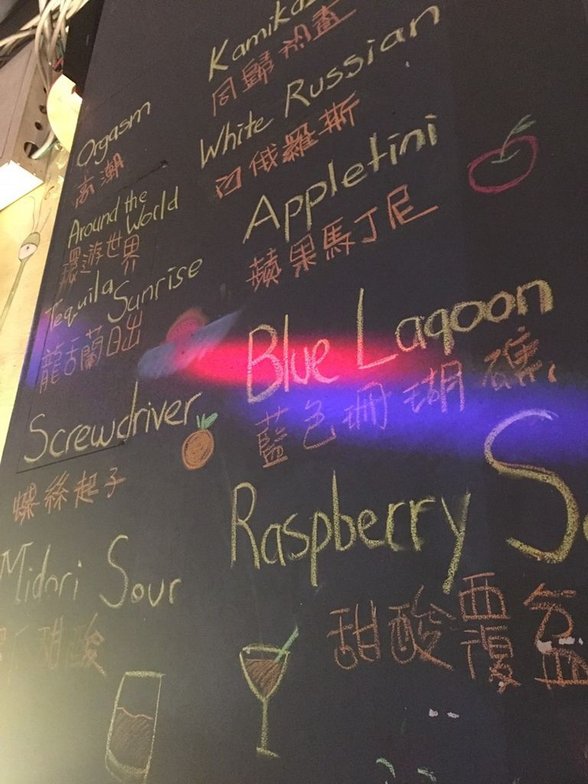 Orgasm
高潮
Around the World
環遊世界
Tequila Sunrise
龍舌蘭日出
Screwdriver
螺絲起子
Midori Sour
甜酸
同歸
White Russian
白俄羅斯
Appletini
蘋果馬丁尼
Blue Lagoon
藍色珊瑚礁
Raspberry
甜酸覆盆